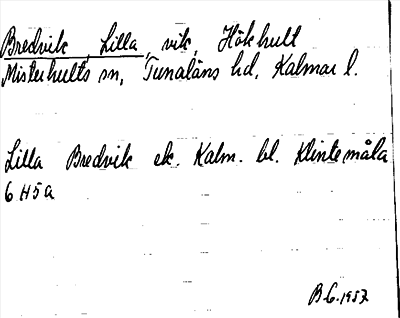 Bredvik, Lilla, vik, Hökhult
Misterhults sn, Tunaläns hd, Kalmar l.
Lilla Bredvik ek. Kalm. bl. Klintemåla
6 H 5 a
B G. 1957